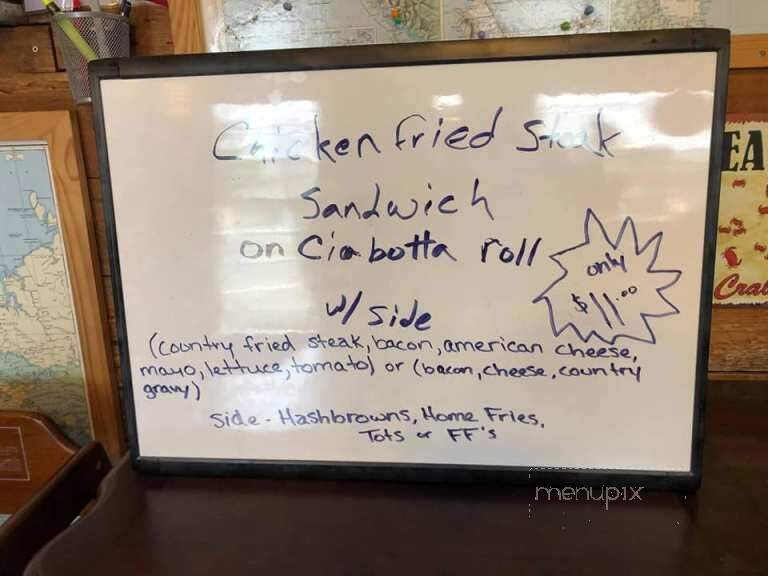 Chicken fried Steak
Sandwich
on Ciabotta roll
only
$11.00
w/ side
(country fried steak, bacon, american cheese,
mayo, lettuce, tomato) or (bacon, cheese, country
gravy)
Side - Hashbrowns, Home Fries,
Tots or FF's
menupix
EA
Cra